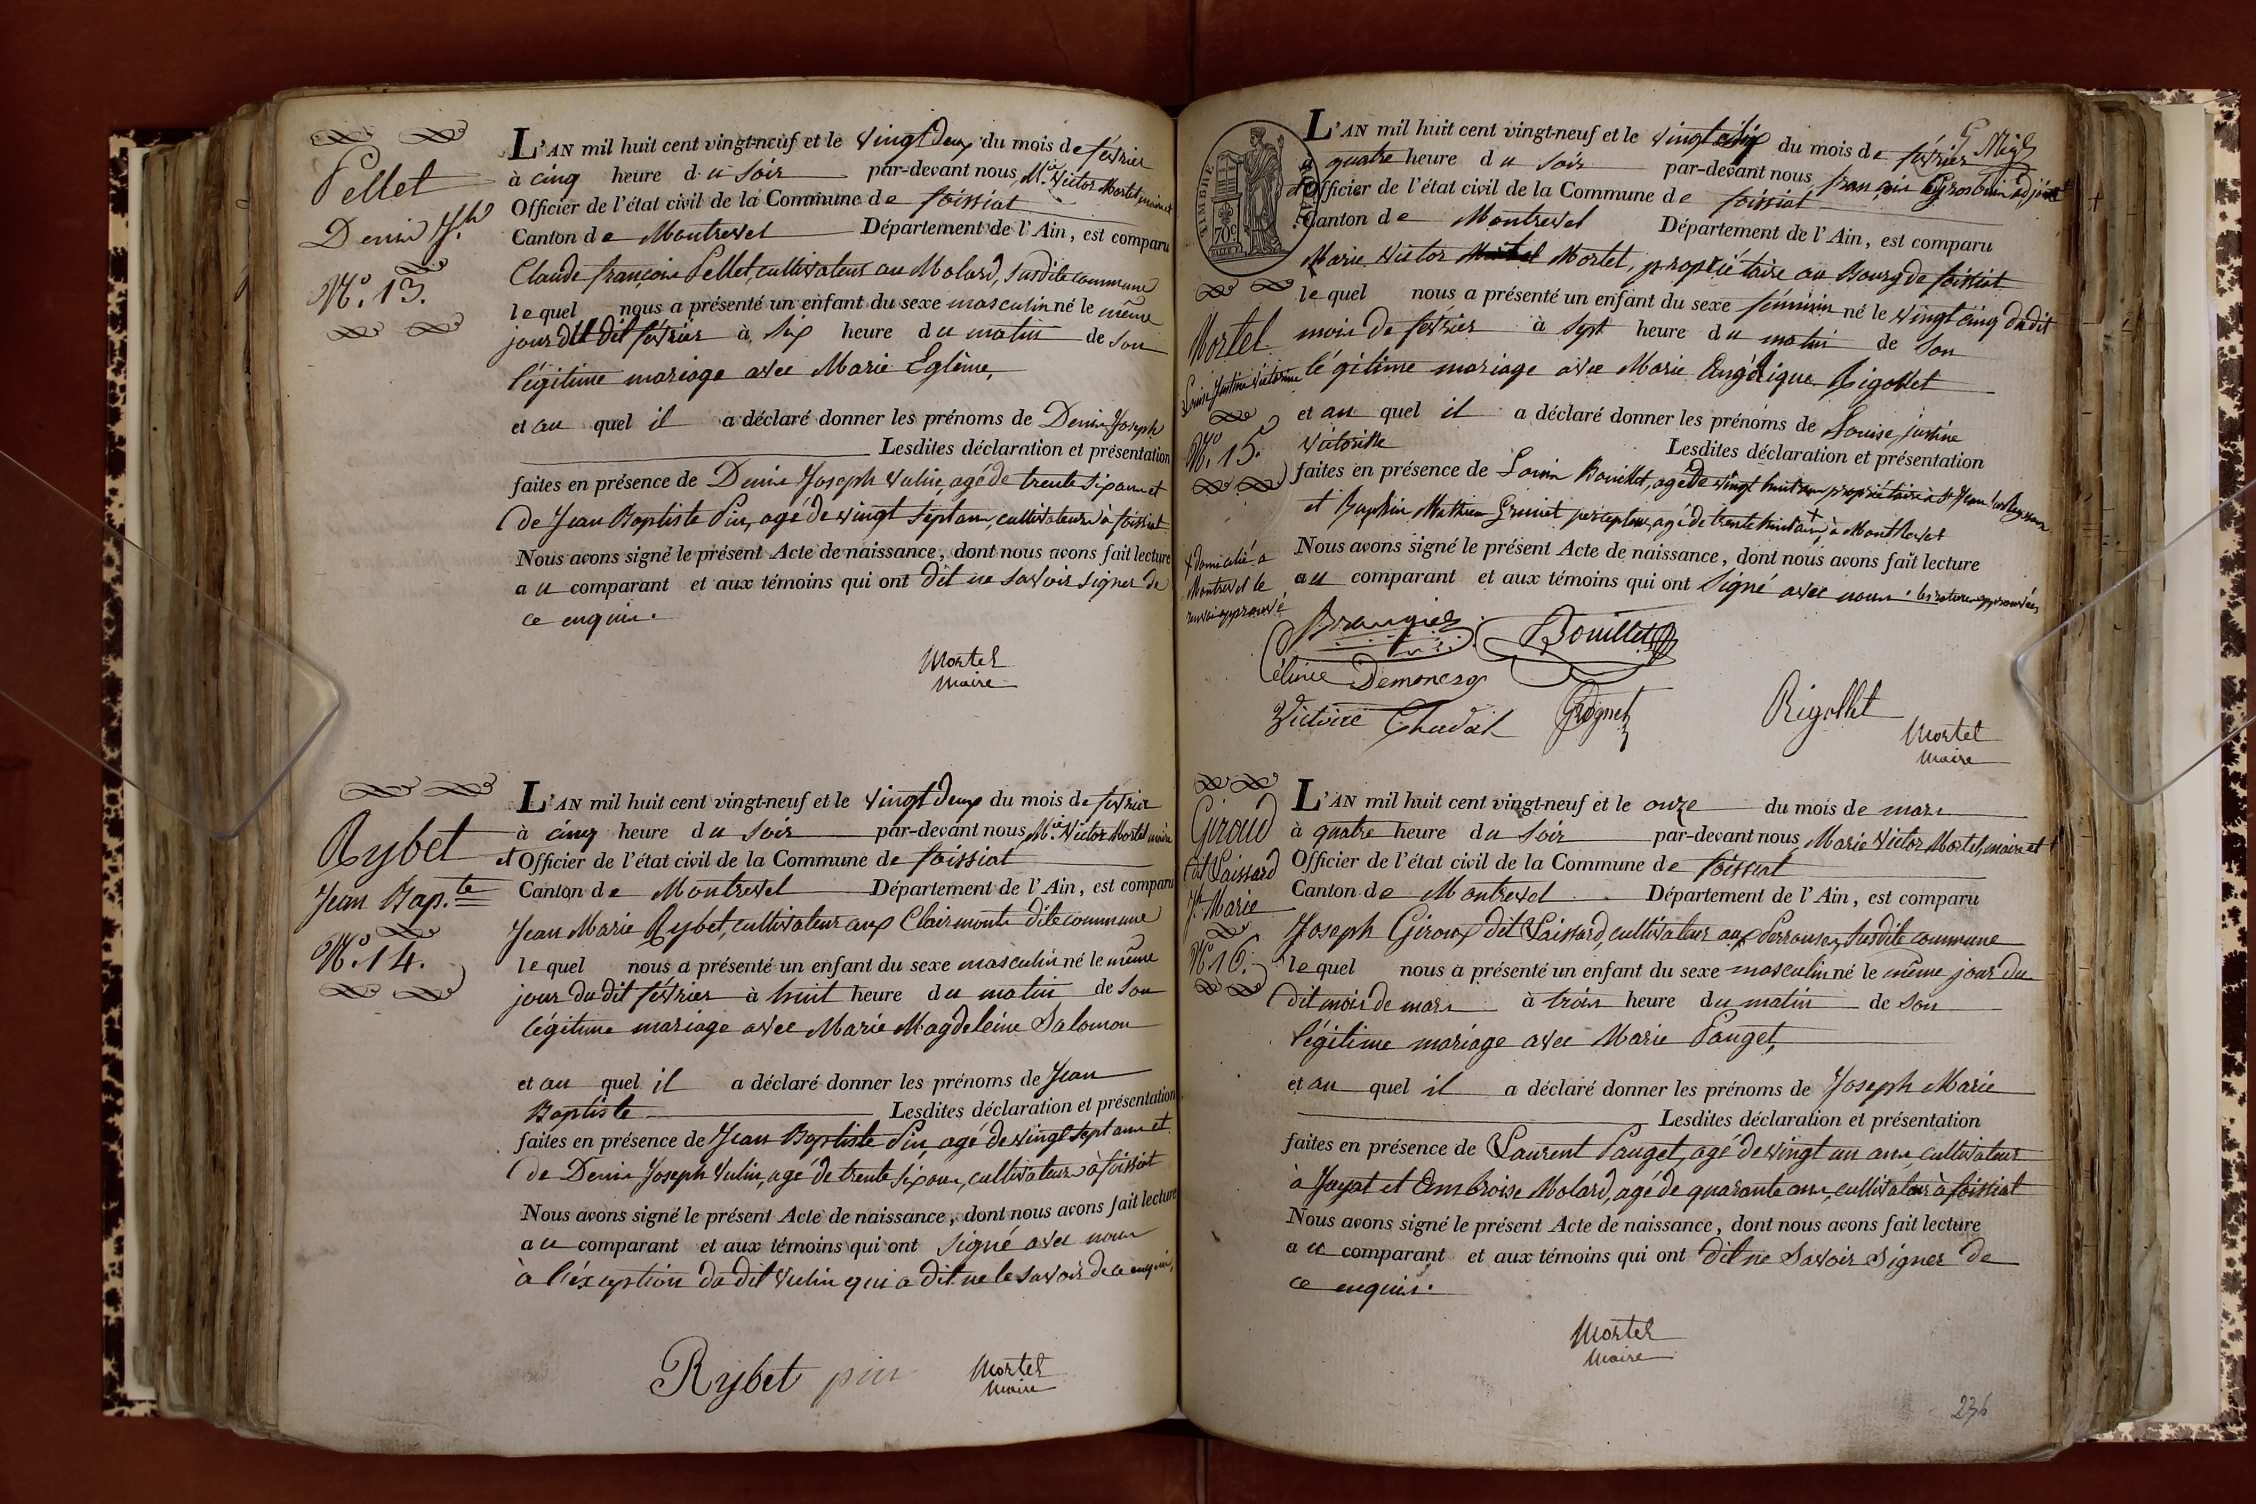 Pellet
Denis Jh
N°. 13.
L'AN mil huit cent vingt-neuf et le vingt deux du mois de février
à cinq heure du soir par-devant nous, Mie. Victor Mortel, maire et
Officier de l'état civil de la Commune de foissiat
Canton de Montrevel Département de l'Ain, est comparu
Claude françois Pellet, cultivateur au Molard, susdite commune
lequel nous a présenté un enfant du sexe masculin né le même
jour du dit février à six heure du matin de son
légitime mariage avec Marie Eglème,
et au quel il a déclaré donner les prénoms de Denis Joseph
Lesdites déclaration et présentation
faites en présence de Denis Joseph Vulin, agé de trente six ans et
de Jean Baptiste Pin, agé de vingt sept ans, cultivateurs à foissiat
Nous avons signé le présent Acte de naissance, dont nous avons fait lecture
au comparant et aux témoins qui ont dit ne savoir signer de
ce enquis.
Mortel
Maire
Rybet
Jean Bap.te
N°. 14.
L'AN mil huit cent vingt-neuf et le vingt deux du mois de février
à cinq heure du soir par-devant nous, Mie. Victor Mortel maire
et Officier de l'état civil de la Commune de foissiat
Canton de Montrevel Département de l'Ain, est comparu
Jean Marie Rybet, cultivateur aux Clairmonts dite commune
lequel nous a présenté un enfant du sexe masculin né le même
jour du dit février à huit heure du matin de son
légitime mariage avec Marie Magdeleine Salomon
et au quel il a déclaré donner les prénoms de Jean
Baptiste Lesdites déclaration et présentation
faites en présence de Jean Baptiste Pin, agé de vingt sept ans et
de Denis Joseph Vulin, agé de trente six ans, cultivateurs à foissiat
Nous avons signé le présent Acte de naissance, dont nous avons fait lecture
au comparant et aux témoins qui ont signé avec nous
à l'éxception du dit Vulin qui a dit ne le savoir de ce enquis,
Rybet pin Mortel
Maire
TIMBRE ROYAL
70c
Mortel
Louise Justine Victorine
N°. 15.
L'AN mil huit cent vingt-neuf et le vingt six du mois de février
à quatre heure du soir par-devant nous françois Grosbuis adjoint
et Officier de l'état civil de la Commune de foissiat
Canton de Montrevel Département de l'Ain, est comparu
Marie Victor Mortel, propriétaire au Bourg de foissiat
lequel nous a présenté un enfant du sexe féminin né le vingt cinq du dit
mois de février à sept heure du matin de son
légitime mariage avec Marie Angélique Rigollet
et au quel il a déclaré donner les prénoms de Louise justine
victorine Lesdites déclaration et présentation
faites en présence de Louis Bouillet, agé de vingt huit ans propriétaire à St Jean
et Mathieu percepteur, agé de trente huit ans, + à Montrevel
Nous avons signé le présent Acte de naissance, dont nous avons fait lecture
au comparant et aux témoins qui ont signé avec nous.
+ domicilié à
Montrevel le
renvoi approuvé
Brangier Bouillet
Céline Demoncey
Victoire Chadal Grognet Rigollet
Mortel
Maire
Giroud
dit Paissard
Jh Marie
N°. 16.
L'AN mil huit cent vingt-neuf et le onze du mois de mars
à quatre heure du soir par-devant nous, Marie Victor Mortel, maire et
Officier de l'état civil de la Commune de foissiat
Canton de Montrevel Département de l'Ain, est comparu
Joseph Giroux dit Paissard, cultivateur aux Perrouses, susdite commune
lequel nous a présenté un enfant du sexe masculin né le même jour du
dit mois de mars à trois heure du matin de son
légitime mariage avec Marie Pauget,
et au quel il a déclaré donner les prénoms de Joseph Marie
Lesdites déclaration et présentation
faites en présence de Laurent Pauget, agé de vingt un ans, cultivateur
à Jayat et Ambroise Molard, agé de quarante ans, cultivateur à foissiat
Nous avons signé le présent Acte de naissance, dont nous avons fait lecture
au comparant et aux témoins qui ont dit ne savoir signer de
ce enquis.
Mortel
Maire
236